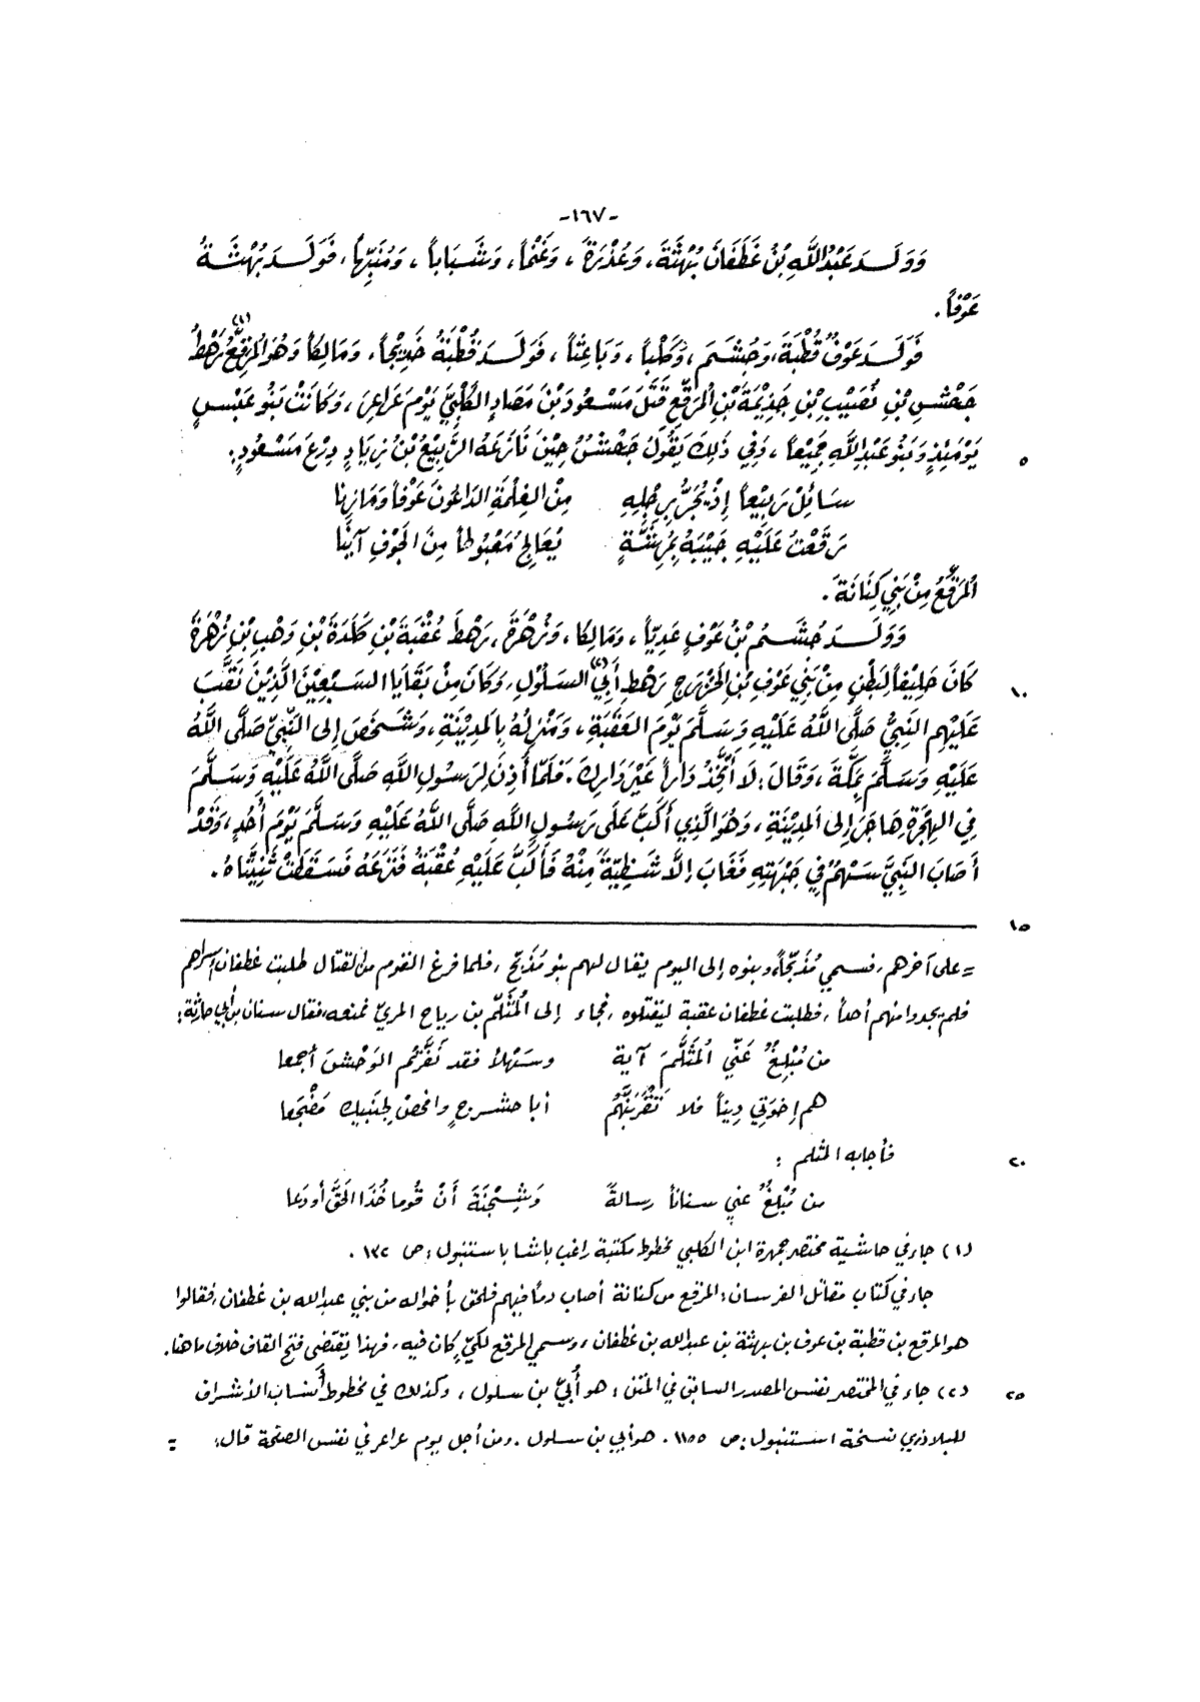 -١٦٧-
وَوَلَـدَ عَبْدُ اللَّهِ بْنُ غَطَفَانَ بُهْثَةَ، وَعُذْرَةَ، وَغَنْماً، وَشَـبَاباً، وَمُنَبِّهاً، فَوَلَـدَ بُهْثَـةُ
عَوْفاً.
فَوَلَـدَ عَوْفٌ قُطْبَةَ، وَجُشَـمَ، وَكَلْباً، وَبَاعِثاً، فَوَلَـدَ قُطْبَةُ خَدِيْجاً، وَمَالِكاً وَهُوَ المُرَقِّعُ(١) رَهْطُ
جَحْشِ بْنِ نُصَيْبِ بْنِ جَذِيْمَةَ بْنِ المُرَقِّعِ قَتَلَ مَسْـعُودَ بْنَ مَصَادٍ الكَلْبِيَّ يَوْمَ عَرَاعِرَ، وَكَانَتْ بَنُو عَبْسٍ
يَوْمَئِذٍ وَبَنُو عَبْدِ اللَّهِ جَمِيْعاً، وَفِي ذَلِكَ يَقُولُ جَحْشٌ حِيْنَ نَازَعَهُ الرَّبِيْعُ بْنُ زِيَادٍ دِرْعَ مَسْـعُودٍ: ٥
سَـائِلْ رَبِيْعاً إِذْ يُجَرُّ بِرِجْلِهِ مِنْ الغِلْمَةِ الدَاعُونَ عَوْفاً وَمَازِنا
رَقَعْتُ عَلَيْهِ جَيْبَهُ بِمُرِشَّـةٍ يُعَالِجُ مَعْبُوطاً مِنَ الجَوْفِ آيِنَا
المُرَقَّعُ مِنْ بَنِي كِنَانَةَ.
وَوَلَـدَ جُشَـمُ بْنُ عَوْفٍ عَدِيّاً، وَمَالِكا، وَزُهْرَةَ، رَهْطَ عُقْبَةَ بْنِ كَلَدَةَ بْنِ وَهْبِ بْنِ زُهْرَةَ
كَانَ حَلِيْفاً لِبَطْنٍ مِنْ بَنِي عَوْفِ بْنِ الخَزْرَجِ رَهْطِ أَبِي(٢) السَـلُولِ، وَكَانَ مِنْ بَقَايَا السَـبْعِيْنَ الَّذِيْنَ نَقَّبَ ١٠
عَلَيْهِم النَبِيُّ صَلَّى اللَّهُ عَلَيْهِ وَسَلَّمَ يَوْمَ العَقَبَةِ، وَمَنْزِلُهُ بِالمَدِيْنَةِ، وَشَـخَصَ إِلى النَّبِيِّ صَلَّى اللَّهُ
عَلَيْهِ وَسَـلَّمَ بِمَكَّةَ، وَقَالَ: لَا أَتَّخِذُ دَاراً غَيْرَ دَارِكَ. فَلَمَّا أُذِنَ لِرَسُولِ اللَّهِ صَلَّى اللَّهُ عَلَيْهِ وَسَلَّمَ
فِي الهِجْرَةِ هَاجَرَ إِلى المَدِيْنَةِ، وَهُوَ الَّذِي أَكَبَّ عَلَى رَسُولِ اللَّهِ صَلَّى اللَّهُ عَلَيْهِ وَسَلَّمَ يَوْمَ أُحُدٍ، وَقَدْ
أَصَابَ النَبِيَّ سَـهْمٌ فِي جَبْهَتِهِ فَغَابَ إِلَّا شَـظِيَّةً مِنْهُ فَأَكَبَّ عَلَيْهِ عُقْبَةُ فَنَزَعَهُ فَسَقَطَتْ ثَنِيَّتَاهُ.
١٥
= على آخرهم، فسمي مُذَبِّحاً، وبنوه إلى اليوم يقال لهم بنو مُذَبِّح، فلما فرغ القوم من القتال طلبت غطفان أسراهم
فلم يجدوا منهم أحداً، فطلبت غطفان عقبة ليقتلوه، فجاء إلى المُثَلَّم بن رياح المريّ فمنعه، فقال سنان بن أبي حارثة:
من مُبْلِغٌ عَنّي المُثَلَّمَ آية وسَـهْلاً فقد نَفَّرْتُم الوَحْشَ أجمعا
هم إخوَتِي دِيناً فلا تَقْرَبَنَّهُم أبا حشـرجٍ وافحصْ لِجَنبيك مَضْجَعا
فأجابه المثلم: ٢٠
من مُبْلِغٌ عني سناناً رسالةً وَشِجْنَةَ أَنْ قُوما خُذَا الحَقَّ أودَعا
(١) جاء في حاشية مختصر جمهرة ابن الكلبي مخطوط مكتبة راغب باشا باستنبول: ص ١٣٢.
جاء في كتاب مقاتل الفرسان: المرقع من كنانة أصاب دماً فيهم فلحق بأخواله من بني عبدالله بن غطفان، فقالوا
هو المرقع بن قطبة بن عوف بن بهثة بن عبدالله بن غطفان، وسمي المرقع لكيٍّ كان فيه، فهذا يقتضى فتح القاف خلاف ما هنا.
(٢) جاء في المختصر نفس المصدر السابق في المتن: هو أُبيّ بن سلول، وكذلك في مخطوط أنساب الأشراف ٢٥
للبلاذري نسخة استنبول: ص ١١٥٥. هو أبي بن سلول. ومن أجل يوم عراعر في نفس الصفحة قال: =